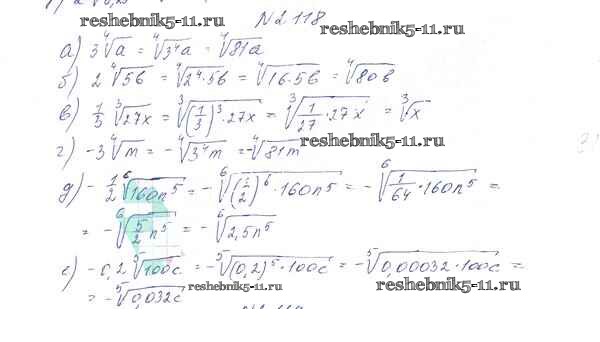 reshebnik5-11.ru №2 118 reshebnik5-11.ru
а) 3⁴√a = ⁴√(3⁴a) = ⁴√(81a)
б) 2 ⁴√(5b) = ⁴√(2⁴·5b) = ⁴√(16·5b) = ⁴√(80b)
в) 1/3 ³√(27x) = ³√((1/3)³·27x) = ³√(1/27·27x) = ³√x
г) -3⁴√m = -⁴√(3⁴m) = -⁴√(81m) reshebnik5-11.ru
д) -1/2 ⁶√(160n⁵) = -⁶√((1/2)⁶·160n⁵) = -⁶√(1/64·160n⁵) =
= -⁶√(5/2 n⁵) = -⁶√(2,5n⁵)
е) -0,2 ⁵√(100c) = -⁵√((0,2)⁵·100c) = -⁵√(0,00032·100c) =
= -⁵√(0,032c) reshebnik5-11.ru reshebnik5-11.ru